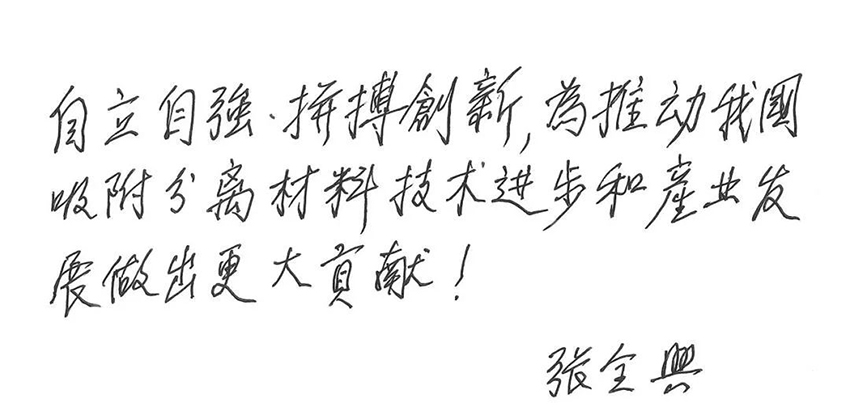 自立自強·拼搏創新,為推动我國
吸附分离材料技术进步和產业发
展做出更大貢献!
張全興